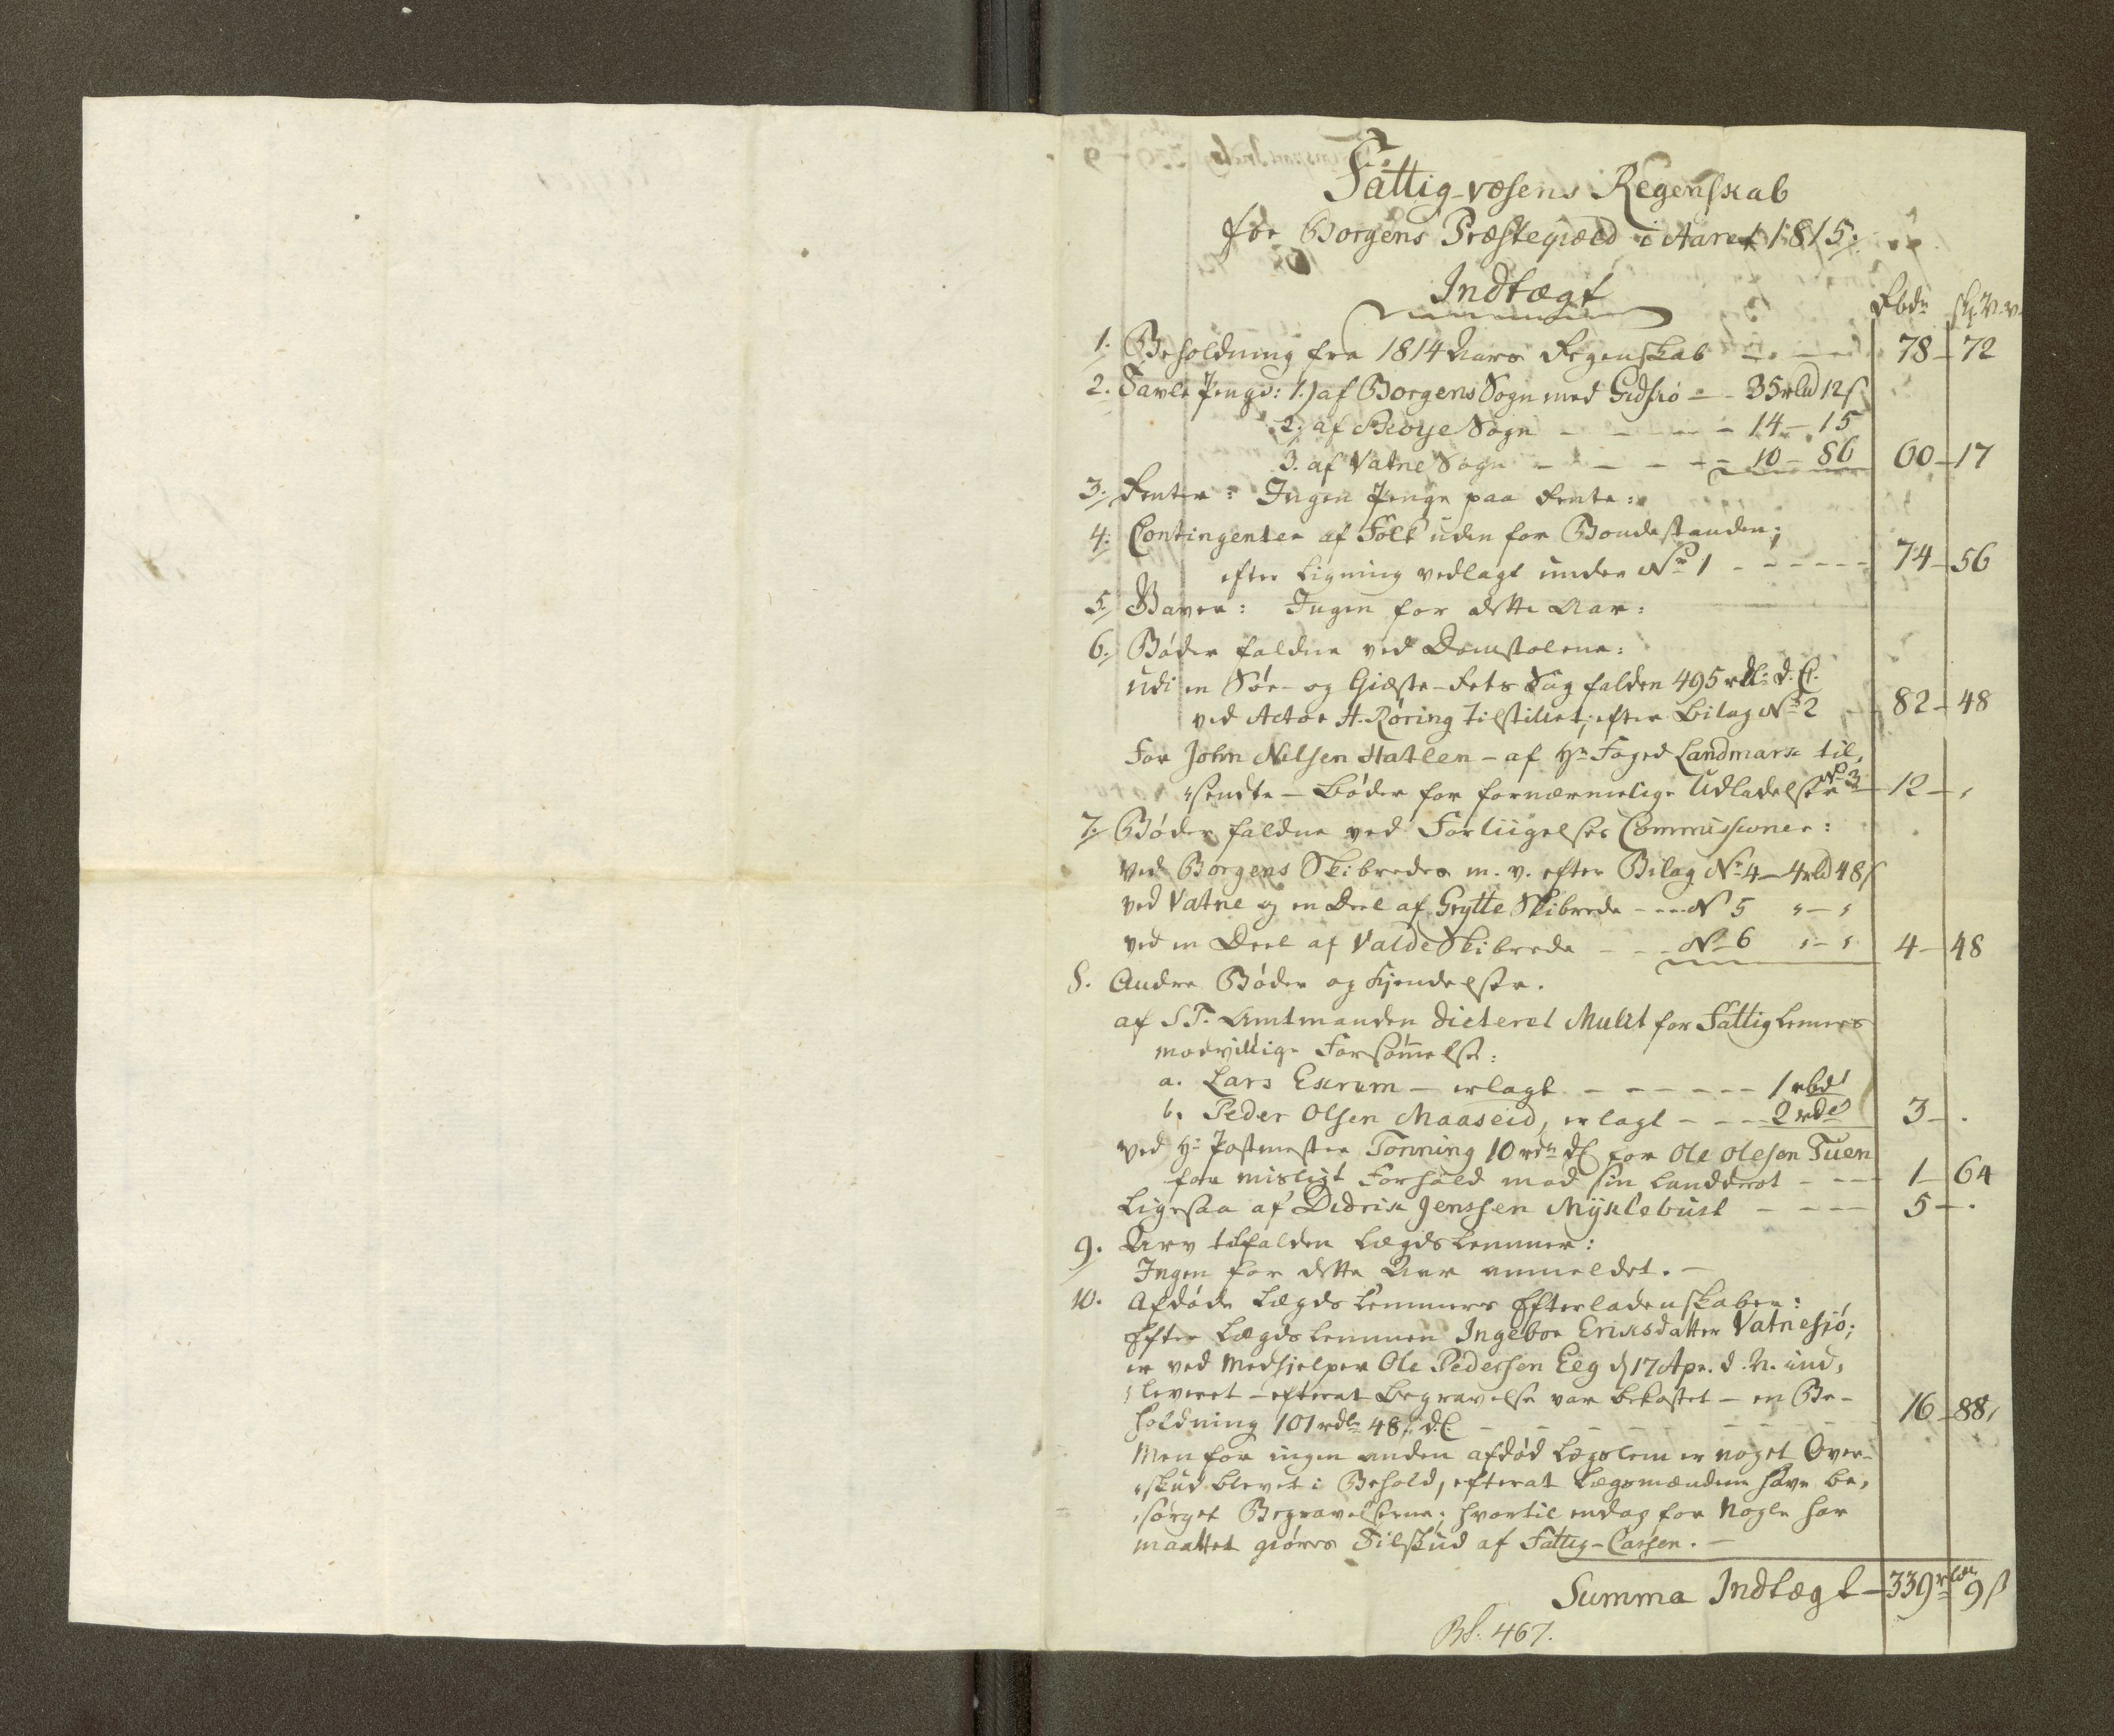 Fattig-væsens Regenskab
for Borgens Præstegiæld i Aaret 1815:
Indtægt
Rbdr sk. N.V.
1. Beholdning fra 1814 Aars Regenskab - - - 78-72
2. Tavle Penge: 1.) af Borgens Sogn med Gidsiø - - 35rbd 12s
2. af Roye Sogn - - - - - 14-15
3. af Vatne Sogn - - - - - 10-86 60-17
3. Renter: Ingen Penge paa Rente:
4. Contingenter af Folk uden for Bondestanden;
efter Ligning vedlagt under No 1 - - - - - - 74-56
5. Gaver: Ingen for dette Aar:
6. Bøder faldne ved Domstolene:
udi en Søe- og Giæste-Rets Sag falden 495 rdl: d.C.
ved Actor H. Røring tilstillet; efter Bilag No 2 82-48
For John Nilsen Hatlen - af Hr Foged Landmark til,
sendte - Bøder for fornærmelige Udladelser No 3 12-,
7. Bøder faldne ved Forliigelses Commissioner:
ved Borgens Skibredes m. v. efter Bilag No 4 - 4rbd 48s
ved Vatne og en Deel af Grytte Skibrede - - - No 5 ,-,
ved en Deel af Valde Skibrede - - - No 6 ,-, 4-48
8. Andre Bøder og Kjendelser.
af S.T. Amtmanden dicteret Mulct for Fattiglemers
modvillige Forsømmelse:
a. Lars Exrem - erlagt - - - - - - 1 rbd
b. Peder Olsen Maaseid, erlagt - - - 2 rbd 3-.
ved Hr Postmester Tønning 10 rdr dC for Ole Olesen Tuen
for misligt Forhold mod sin Landdrot - - - - 1-64
Ligesaa af Didrik Jenssen Myklebust - - - - 5-.
9. Arv tilfalden Lægdslemmer:
Ingen for dette Aar anmeldet. -
10. Afdøde Lægdslemmers Efterladenskaber:
Efter Lægdslemmen Ingebor Eriksdatter Vatnesiø;
er ved Medhjelper Ole Pedersen Eeg d 17 Apr. d. A. ind,
leveret - efterat Begravelse var bekostet - en Be-
holdning 101 rdlr 48s d.C. - - - - - - 16-88,
Men for ingen anden afdød Lægslem er noget Over-
skud blevet i Behold, efterat Lægsmændene have be,
sørget Begravelserne; hvortil endog for Nogle har
maattet giøres Tilskud af Fattig-Cassen. -
Summa Indtægt - 339 rbd 9s
Bl. 467.